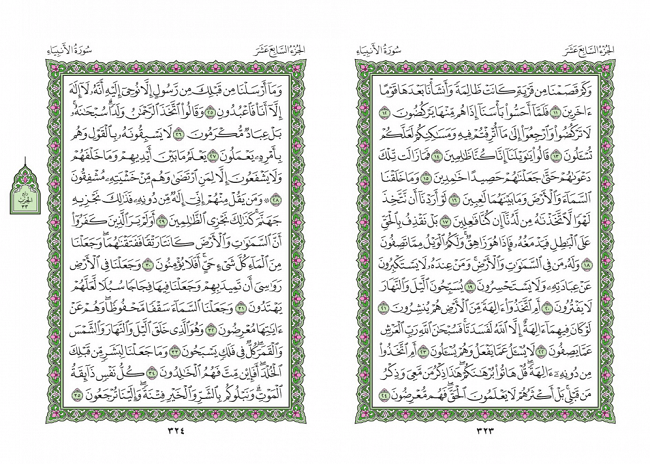 الجزء السابع عشر
سورة الأنبياء
وكم قصمنا من قرية كانت ظالمة وأنشأنا بعدها قوما
ءاخرين ١١ فلما أحسوا بأسنا إذا هم منها يركضون ١٢
لا تركضوا وارجعوا إلى ما أترفتم فيه ومسكنكم لعلكم
تسئلون ١٣ قالوا يويلنا إنا كنا ظلمين ١٤ فما زالت تلك
دعوىهم حتى جعلنهم حصيدا خمدين ١٥ وما خلقنا
السماء والأرض وما بينهما لعبين ١٦ لو أردنا أن نتخذ
لهوا لاتخذنه من لدنا إن كنا فعلين ١٧ بل نقذف بالحق
على البطل فيدمغه فإذا هو زاهق ولكم الويل مما تصفون
١٨ وله من في السموت والأرض ومن عنده لا يستكبرون
عن عبادته ولا يستحسرون ١٩ يسبحون اليل والنهار
لا يفترون ٢٠ أم اتخذوا ءالهة من الأرض هم ينشرون ٢١
لو كان فيهما ءالهة إلا الله لفسدتا فسبحن الله رب العرش
عما يصفون ٢٢ لا يسئل عما يفعل وهم يسئلون ٢٣ أم اتخذوا
من دونه ءالهة قل هاتوا برهنكم هذا ذكر من معي وذكر
من قبلي بل أكثرهم لا يعلمون الحق فهم معرضون ٢٤
٣٢٣
الجزء السابع عشر
سورة الأنبياء
وما أرسلنا من قبلك من رسول إلا نوحي إليه أنه لا إله
إلا أنا فاعبدون ٢٥ وقالوا اتخذ الرحمن ولدا سبحنه
بل عباد مكرمون ٢٦ لا يسبقونه بالقول وهم
بأمره يعملون ٢٧ يعلم ما بين أيديهم وما خلفهم
ولا يشفعون إلا لمن ارتضى وهم من خشيته مشفقون
٢٨ ومن يقل منهم إني إله من دونه فذلك نجزيه
جهنم كذلك نجزي الظلمين ٢٩ أولم ير الذين كفروا
أن السموت والأرض كانتا رتقا ففتقنهما وجعلنا
من الماء كل شيء حي أفلا يؤمنون ٣٠ وجعلنا في الأرض
روسي أن تميد بهم وجعلنا فيها فجاجا سبلا لعلهم
يهتدون ٣١ وجعلنا السماء سقفا محفوظا وهم عن
ءايتها معرضون ٣٢ وهو الذي خلق اليل والنهار والشمس
والقمر كل في فلك يسبحون ٣٣ وما جعلنا لبشر من قبلك
الخلد أفإين مت فهم الخلدون ٣٤ كل نفس ذائقة
الموت ونبلوكم بالشر والخير فتنة وإلينا ترجعون ٣٥
٣٢٤